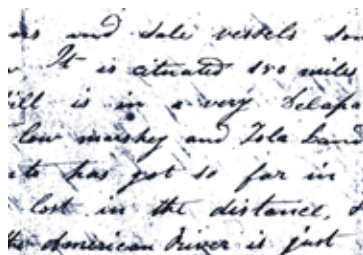 and sale vessels
It is cituated 150 miles
is in a very
low marshey and Tola Land
has got so far in
lost in the distance,
the American River is just